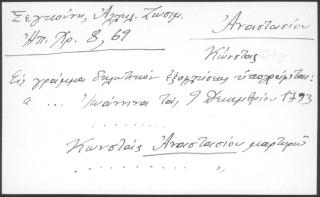 Σεγκούνη, Λησμ. Ζωσιμ.
Ἠπ. Χρ. 8, 69
Ἀναστασίου
Κώνστας
Εἰς γράμμα δηλωτικὸν ἐξοφλήσεως ὑπογράφεται:
" ... Ἰωάννινα τὰς 9 Δεκεμβρίου 1793
. . . . . . . .
Κωνστὰς Ἀναστασίου μαρτυρῶ
. . . . . . . . . . "